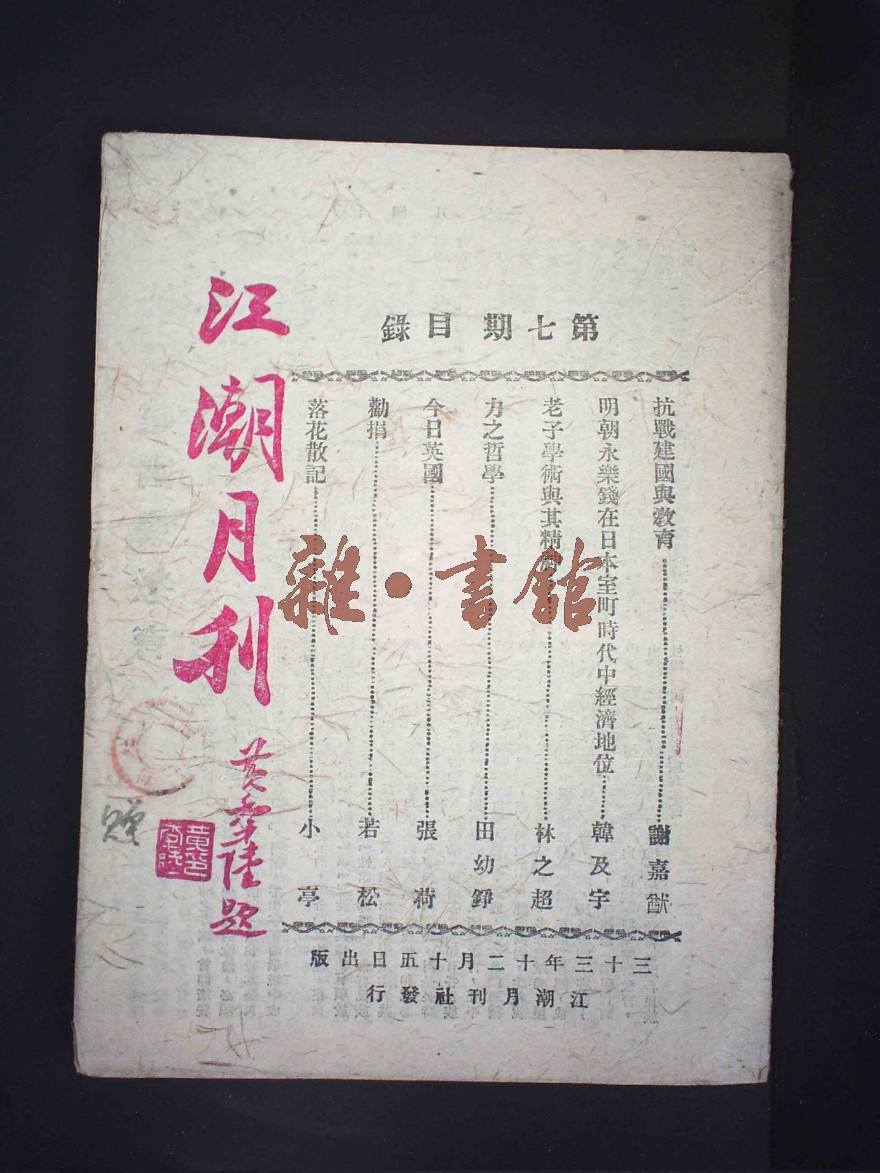 江潮月刊
黃季陸題
黃季陸印
贈
第七期目錄
抗戰建國與教育……謝嘉猷
明朝永樂錢在日本室町時代中經濟地位……韓及宇
老子學術與其精神……林之超
力之哲學……田幼錚
今日英國……張荷
勸捐……若松
落花散記……小亭
三十三年十二月十五日出版
江潮月刊社發行
雜·書館